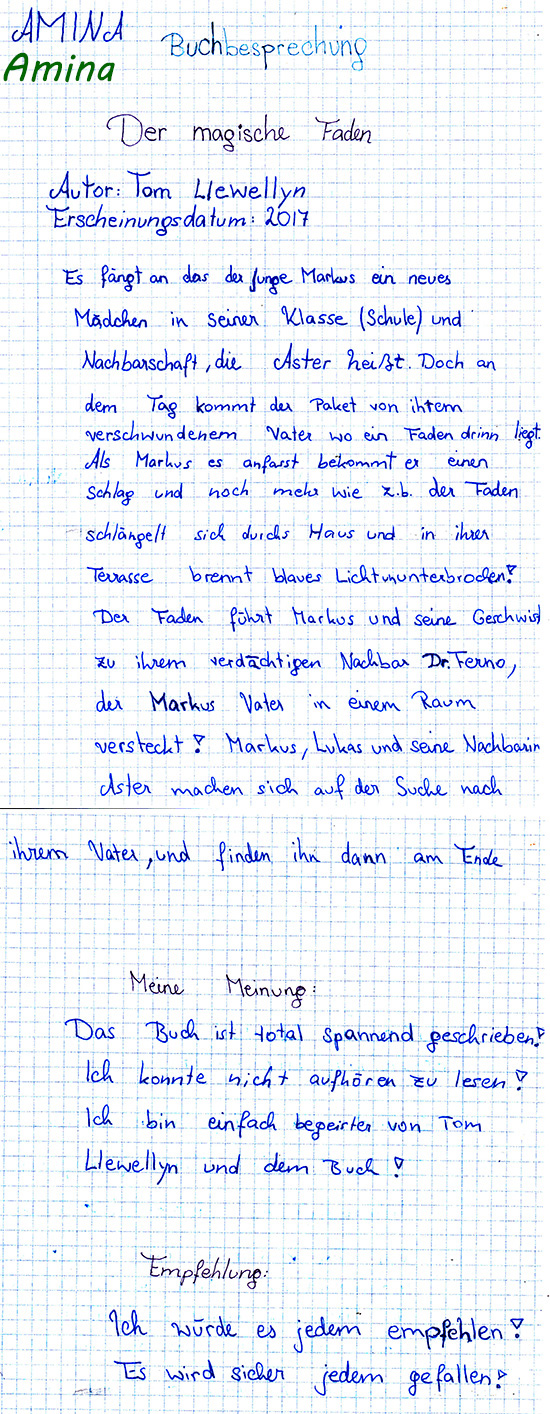 AMINA
Amina
Buchbesprechung
Der magische Faden
Autor: Tom Llewellyn
Erscheinungsdatum: 2017
Es fängt an das der Junge Markus ein neues
Mädchen in seiner Klasse (Schule) und
Nachbarschaft, die Aster heißt. Doch an
dem Tag kommt der Paket von ihrem
verschwundenem Vater wo ein Faden drinn liegt.
Als Markus es anfasst bekommt er einen
Schlag und noch mehr wie z.b. der Faden
schlängelt sich durchs Haus und in ihrer
Terrasse brennt blaues Licht ununterbroden!
Der Faden führt Markus und seine Geschwist
zu ihrem verdächtigen Nachbar Dr. Ferno,
der Markus Vater in einem Raum
versteckt! Markus, Lukas und seine Nachbarin
Aster machen sich auf der Suche nach
ihrem Vater, und finden ihn dann am Ende
Meine Meinung:
Das Buch ist total spannend geschrieben!
Ich konnte nicht aufhören zu lesen!
Ich bin einfach begeirter von Tom
Llewellyn und dem Buch!
Empfehlung:
Ich würde es jedem empfehlen!
Es wird sicher jedem gefallen!